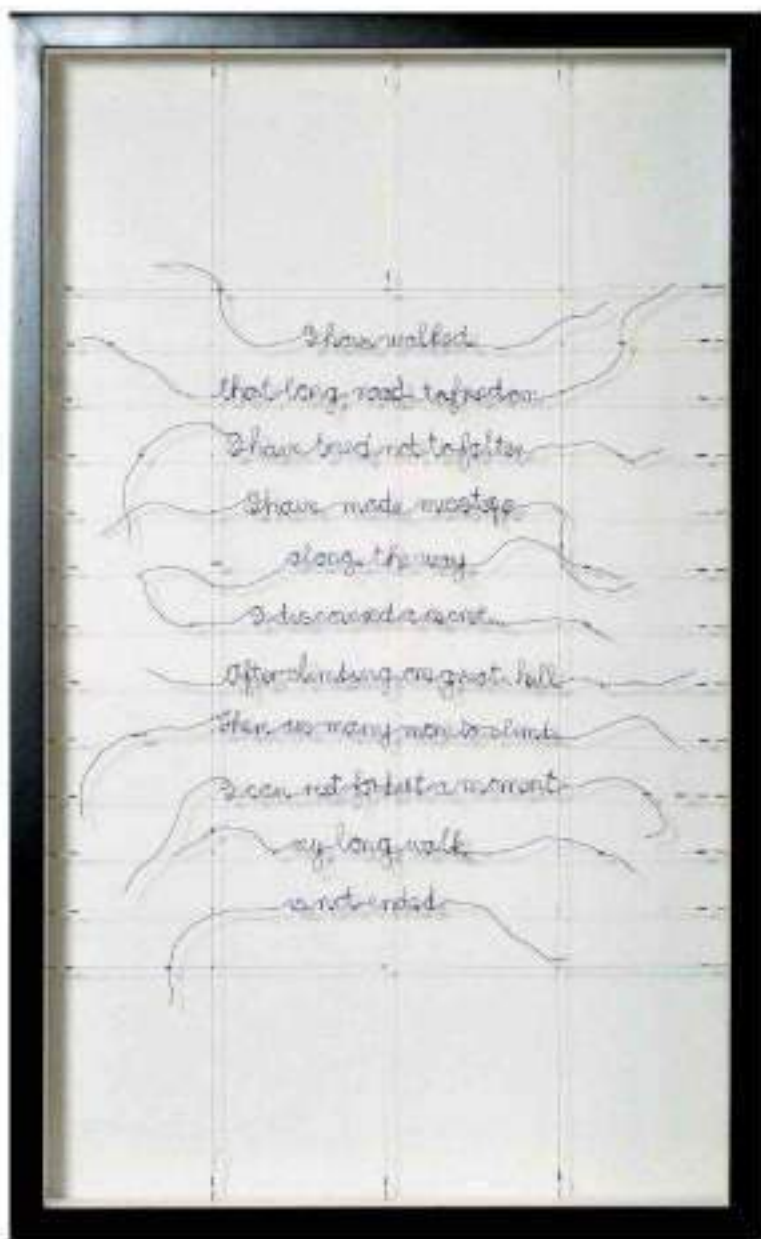 I have walked
that long road to freedom
I have tried not to falter
I have made missteps
along the way
I discovered a secret
After climbing one great hill
there are many more to climb
I can not for but a moment
my long walk
is not ended